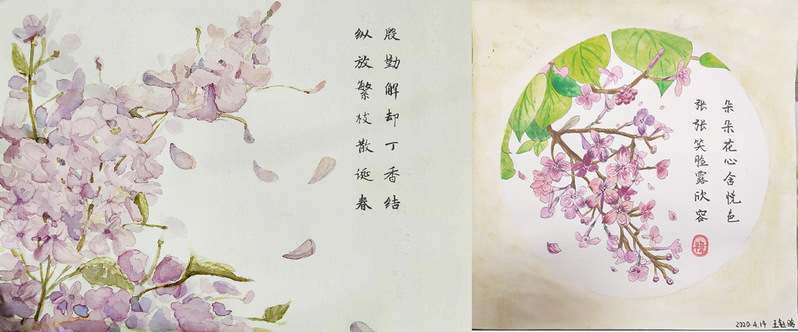 殷勤解却丁香结
纵放繁枝散诞春
朵朵花心含悦色
张张笑脸露欣容
2020.4.14 王